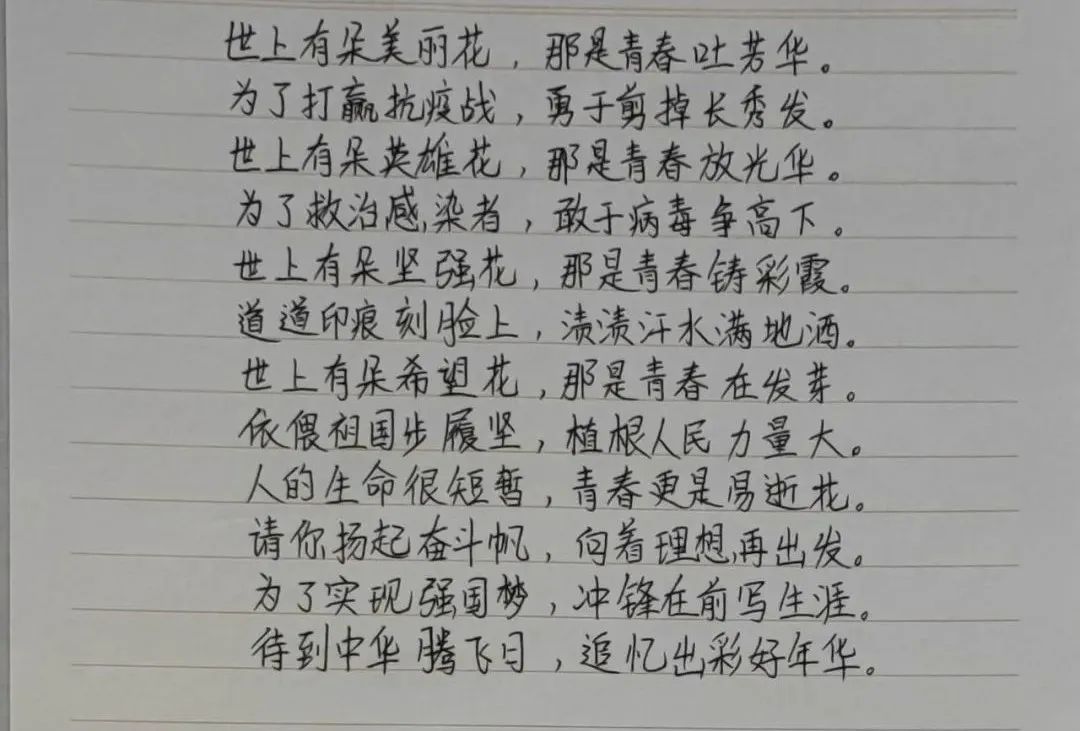 世上有朵美丽花，那是青春吐芳华。
为了打赢抗疫战，勇于剪掉长秀发。
世上有朵英雄花，那是青春放光华。
为了救治感染者，敢于病毒争高下。
世上有朵坚强花，那是青春铸彩霞。
道道印痕刻脸上，渍渍汗水满地洒。
世上有朵希望花，那是青春在发芽。
依偎祖国步履坚，植根人民力量大。
人的生命很短暂，青春更是易逝花。
请你扬起奋斗帆，向着理想再出发。
为了实现强国梦，冲锋在前写生涯。
待到中华腾飞日，追忆出彩好年华。